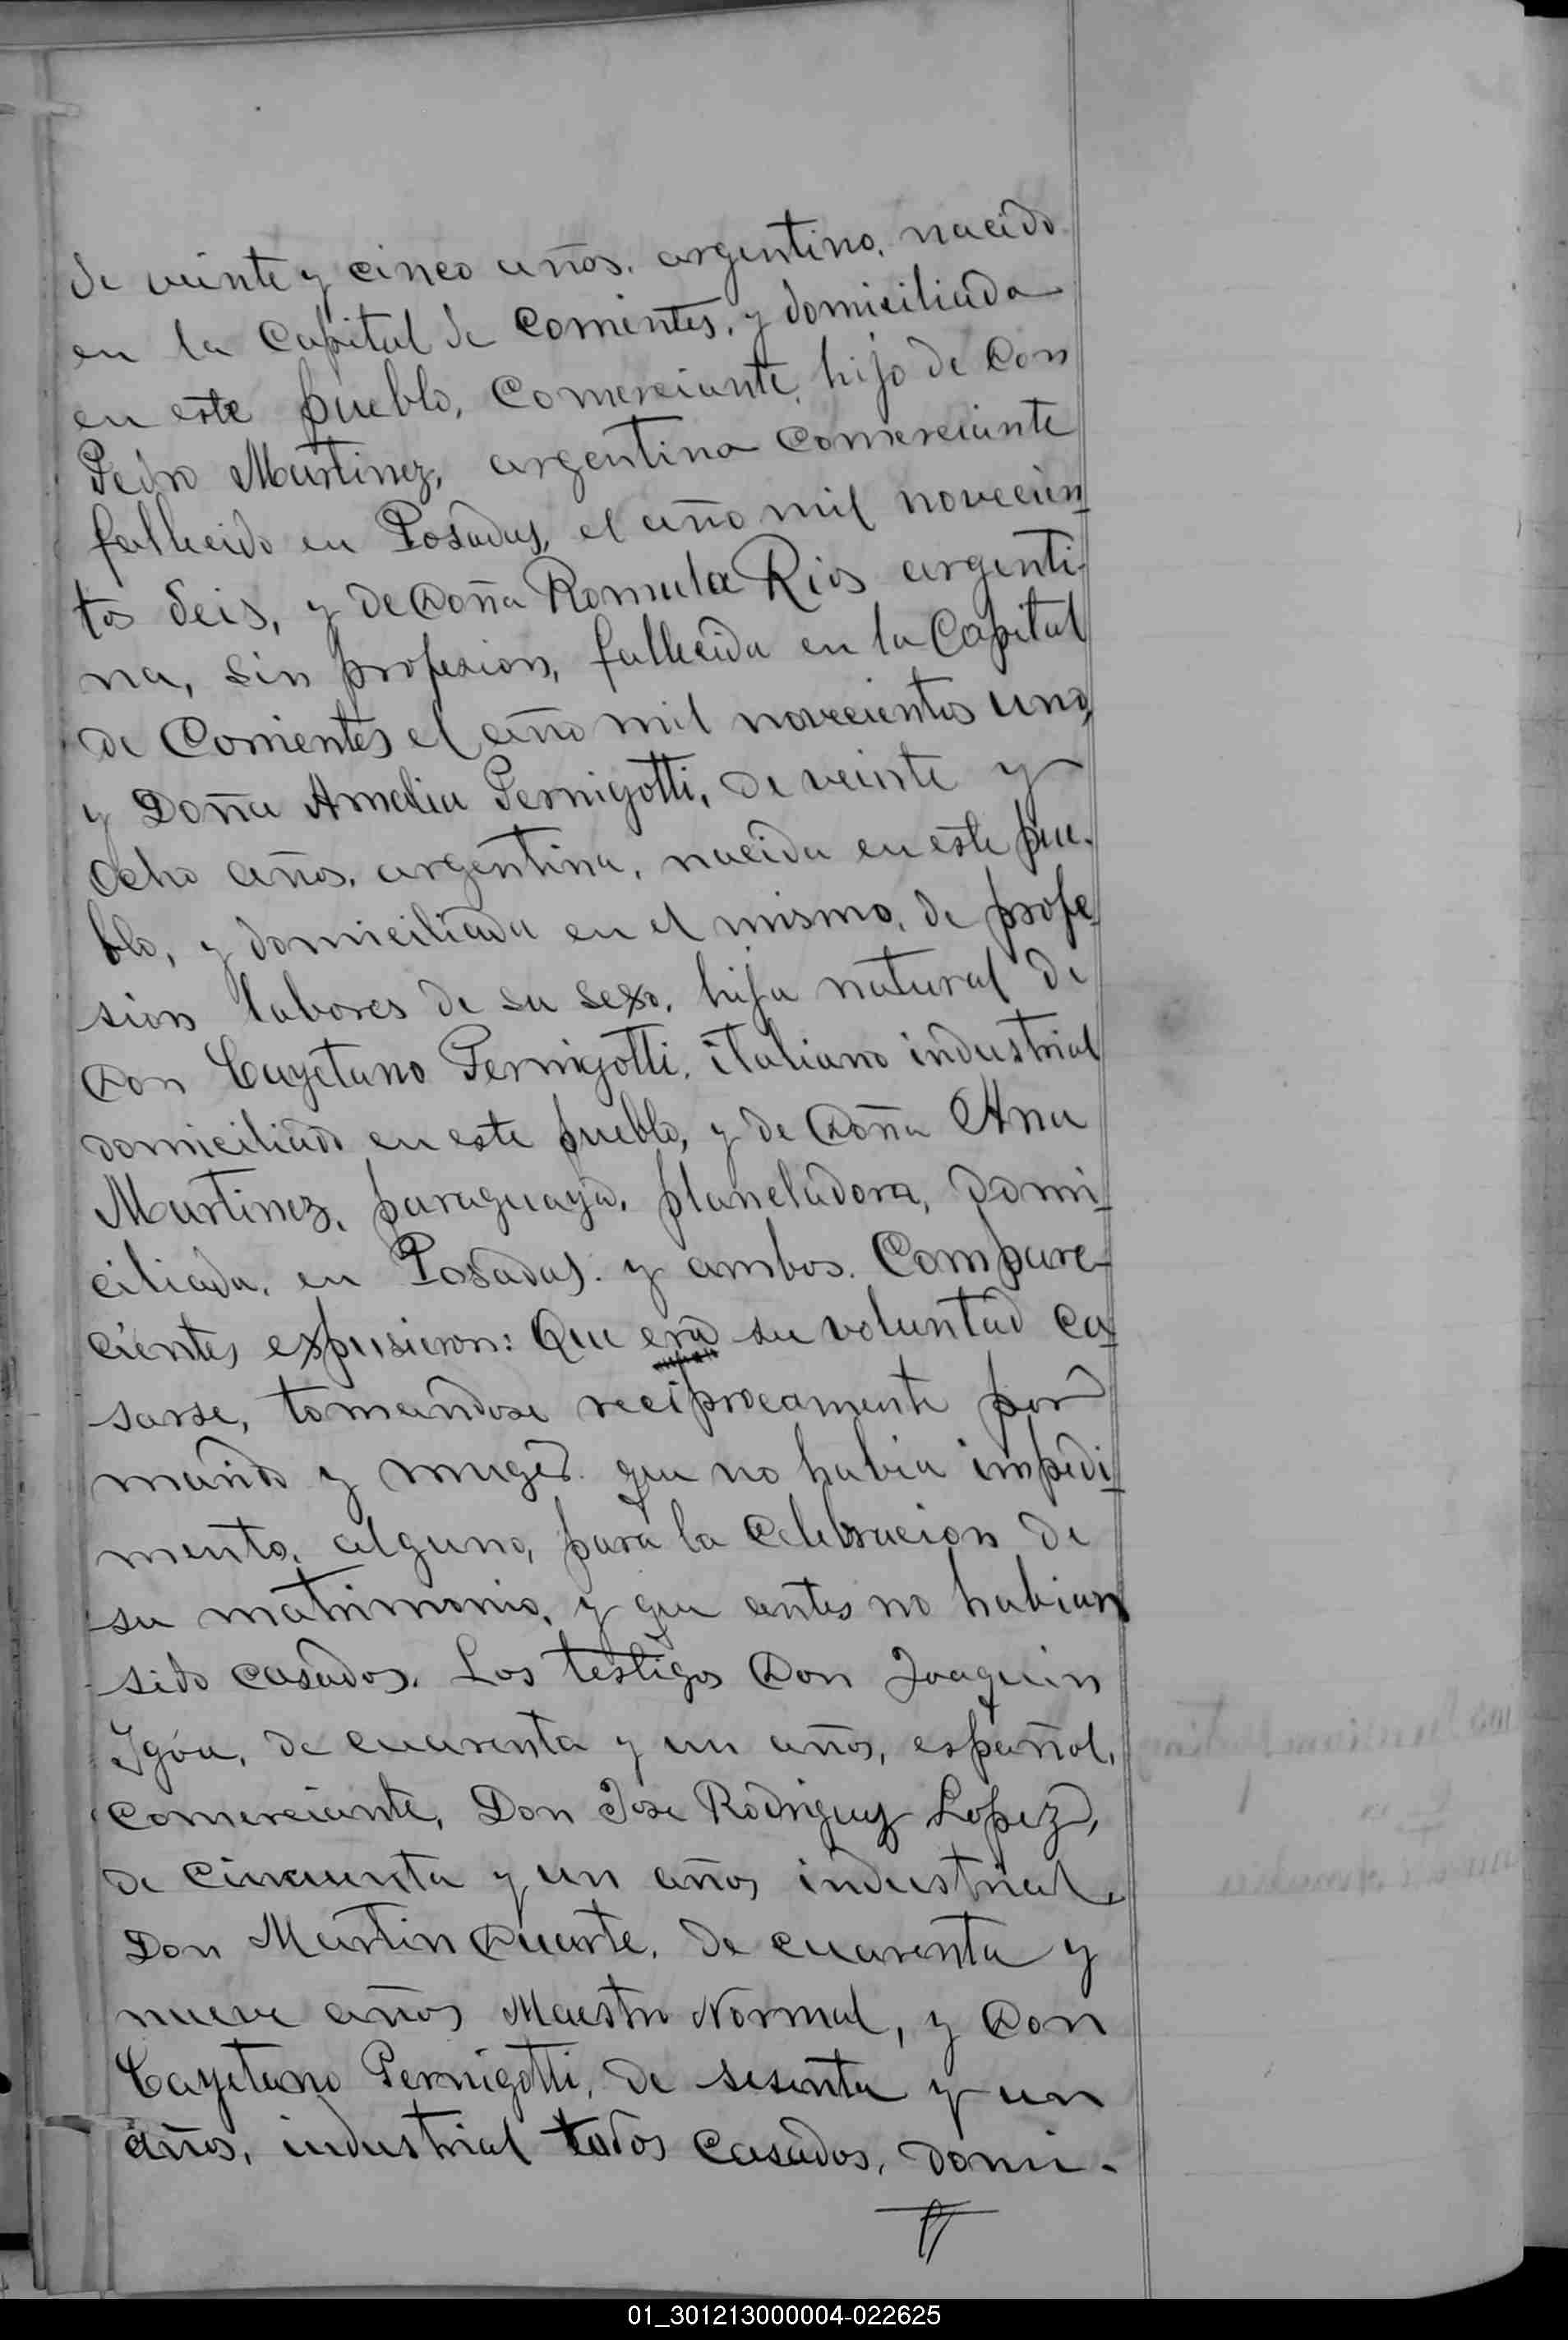 de veinte y cinco años, argentino, nacido
en la Capital de Corrientes, y domiciliado
en este pueblo, Comerciante, hijo de Don
Pedro Martinez, argentino Comerciante
fallecido en Posadas, el año mil novecien
tos Seis, y de Doña Romula Rios argenti-
na, sin profesion, fallecida en la Capital
de Corrientes el año mil novecientos uno,
y Doña Amelia Pernigotti, de veinte y
ocho años, argentina, nacida en este pue-
blo, y domiciliada en el mismo, de profe
sion labores de su sexo, hija natural de
Don Cayetano Pernigotti, italiano industrial
domiciliado en este pueblo, y de Doña Ana
Martinez, paraguaya, planchadora, domi
ciliada, en Posadas: y ambos Compare-
cientes expusieron: Que era su voluntad ca
sarse, tomandose reciprocamente por
marido y muger que no habia impedi
mento, alguno, para la Celebracion de
su matrimonio, y que antes no habian
sido casados. Los testigos Don Joaquin
Igóa, de cuarenta y un años, español,
Comerciante, Don Jose Rodriguez Lopez,
de Cincuenta y un años, industrial,
Don Martin Duarte, de cuarenta y
nueve años Maestro Normal, y Don
Cayetano Pernigotti, de sesenta y un
años, industrial todos Casados, domi-
01_301213000004-022625